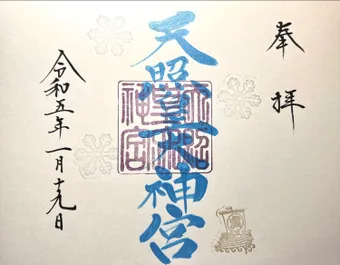 奉拝
天照皇大神宮
令和五年一月十九日